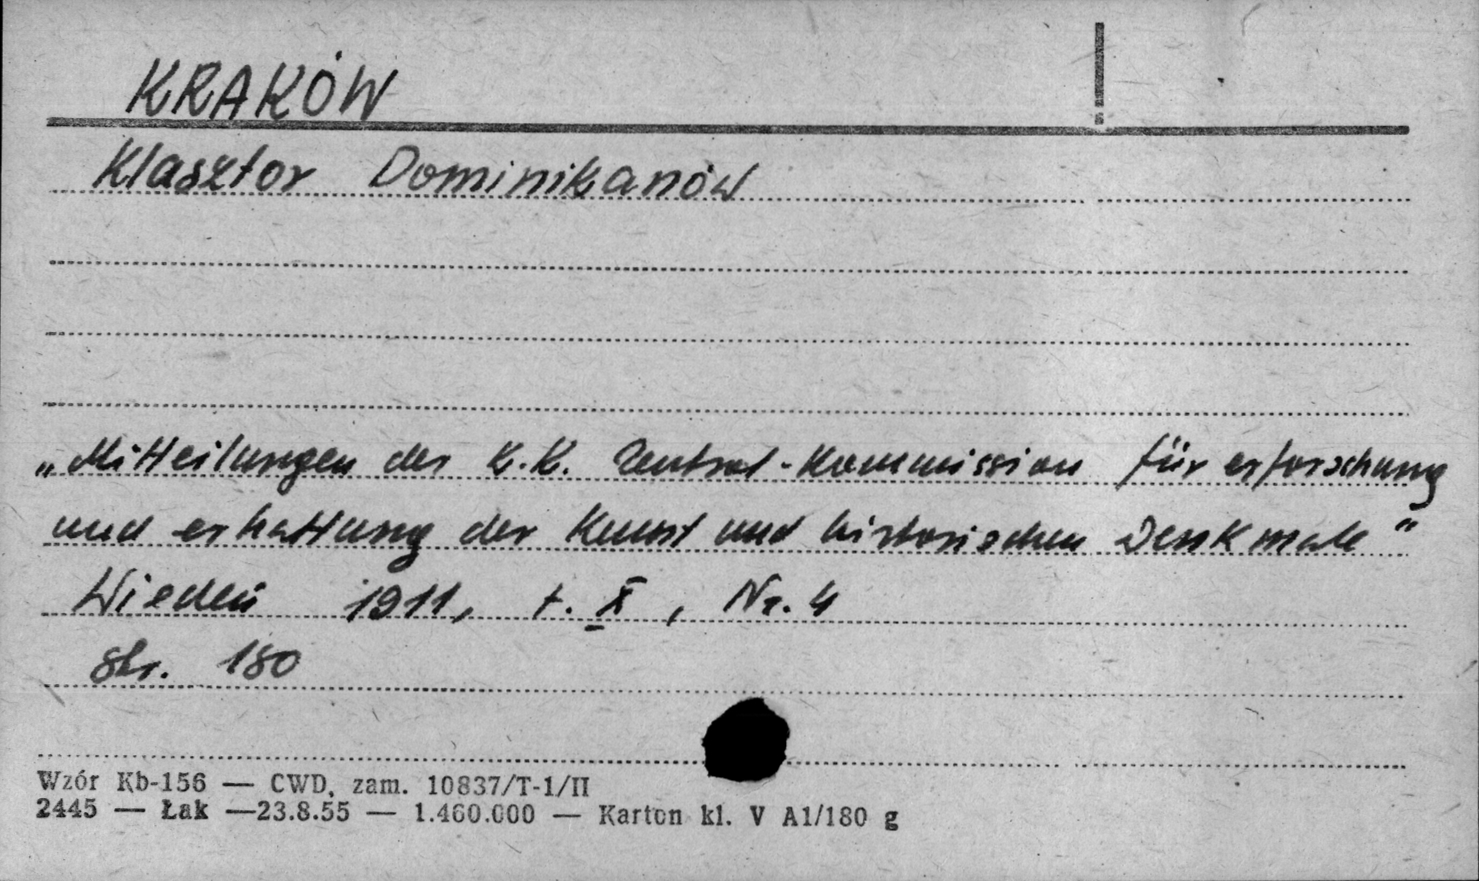 KRAKÓW
Klasztor Dominikanów
„Mitteilungen der K.K. Zentral-Kommission für erforschung
und erhaltung der Kunst und historischen Denkmale"
Wiedeń 1911, t. X, Nr. 4
str. 180
Wzór Kb-156 — CWD, zam. 10837/T-1/II
2445 — Łak —23.8.55 — 1.460.000 — Karton kl. V A1/180 g